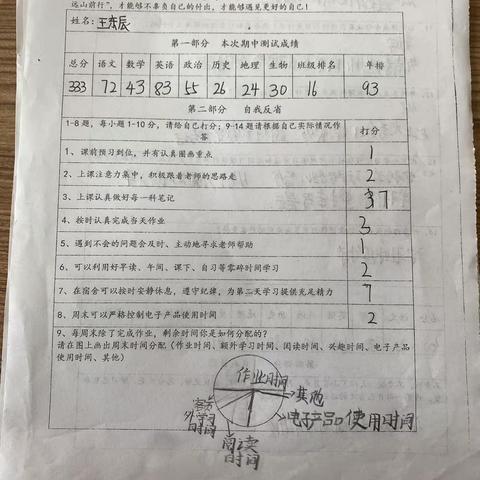 远山前行”，才能够不辜负自己的付出，才能够遇见更好的自己！
姓名：王奕辰
第一部分 本次期中测试成绩
总分 语文 数学 英语 政治 历史 地理 生物 班级排名 年排
333 72 43 83 55 26 24 30 16 93
第二部分 自我反省
1-8题，每小题1-10分，请给自己打分；9-14题请根据自己实际情况作答 打分
1、课前预习到位，并有认真圈画重点 1
2、上课注意力集中，积极跟着老师的思路走 2
3、上课认真做好每一科笔记 7
4、按时认真完成当天作业 3
5、遇到不会的问题会及时、主动地寻求老师帮助 1
6、可以利用好早读、午间、课下、自习等零碎时间学习 2
7、在宿舍可以按时安静休息，遵守纪律，为第二天学习提供充足精力 7
8、周末可以严格控制电子产品使用时间 2
9、每周末除了完成作业，剩余时间你是如何分配的？
请在图上画出周末时间分配（作业时间、额外学习时间、阅读时间、兴趣时间、电子产品
使用时间、其他）
作业时间
其他
电子产品使用时间
外学习
时间
阅读
时间